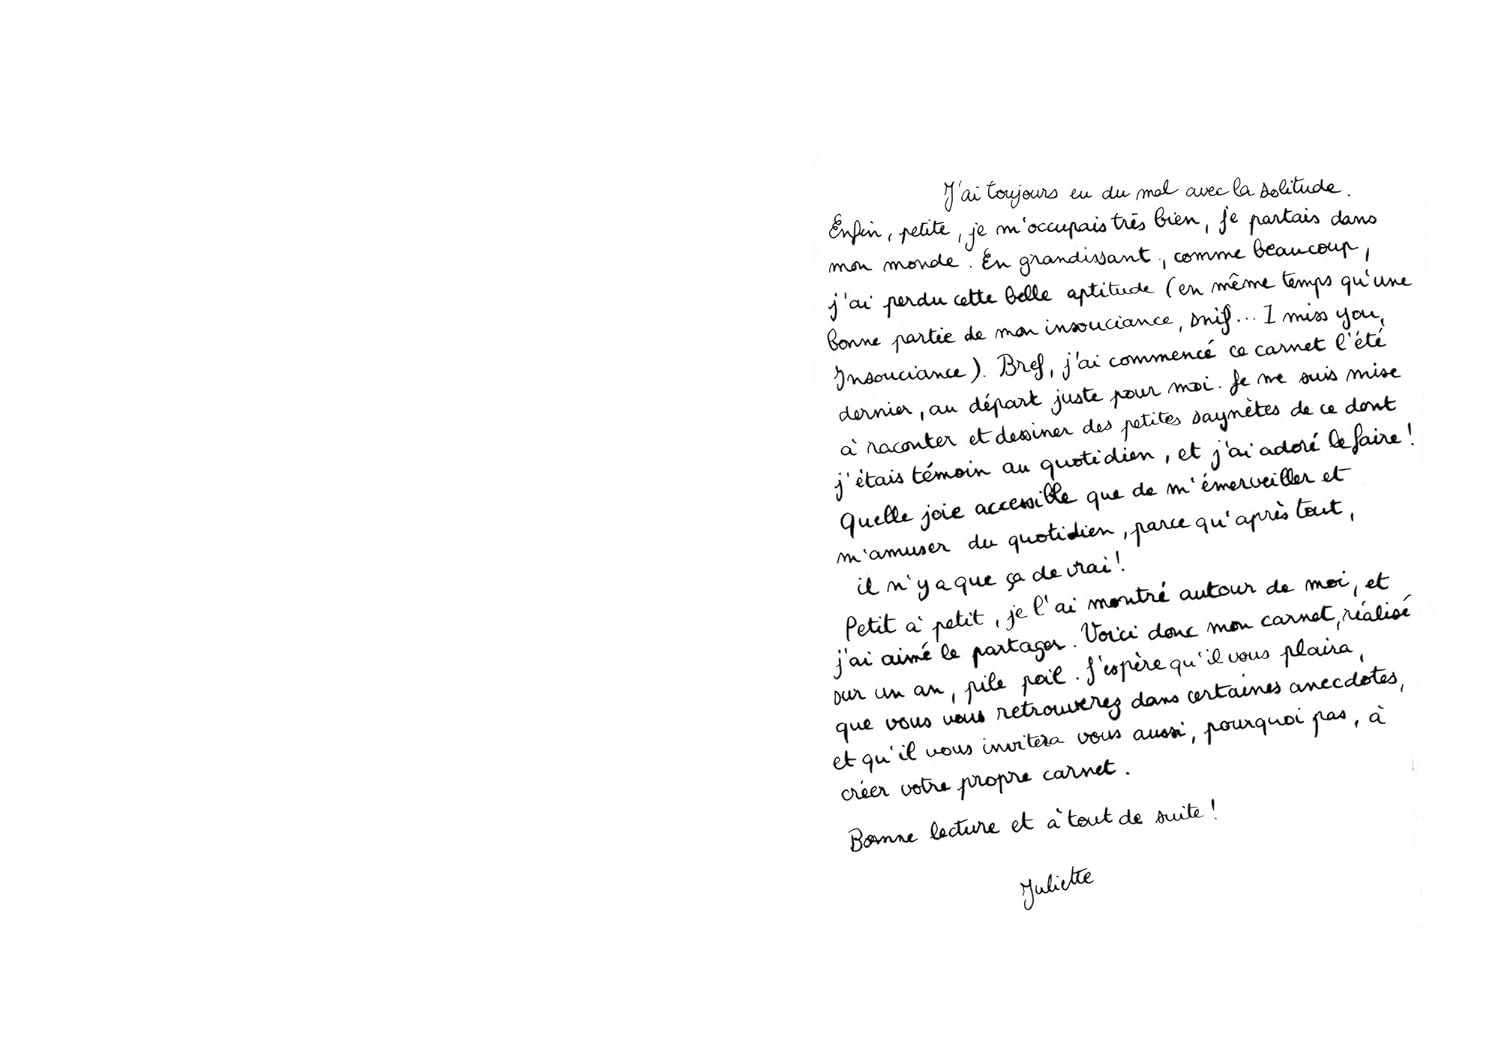 J'ai toujours eu du mal avec la solitude.
Enfin, petite, je m'occupais très bien, je partais dans
mon monde. En grandissant, comme beaucoup,
j'ai perdu cette belle aptitude (en même temps qu'une
bonne partie de mon insouciance, snif... I miss you,
Insouciance). Bref, j'ai commencé ce carnet l'été
dernier, au départ juste pour moi. Je me suis mise
à raconter et dessiner des petites saynètes de ce dont
j'étais témoin au quotidien, et j'ai adoré le faire !
Quelle joie accessible que de m'émerveiller et
m'amuser du quotidien, parce qu'après tout,
il n'y a que ça de vrai !
Petit à petit, je l'ai montré autour de moi, et
j'ai aimé le partager. Voici donc mon carnet, réalisé
sur un an, pile poil. J'espère qu'il vous plaira,
que vous vous retrouverez dans certaines anecdotes,
et qu'il vous invitera vous aussi, pourquoi pas, à
créer votre propre carnet.
Bonne lecture et à tout de suite !
Juliette